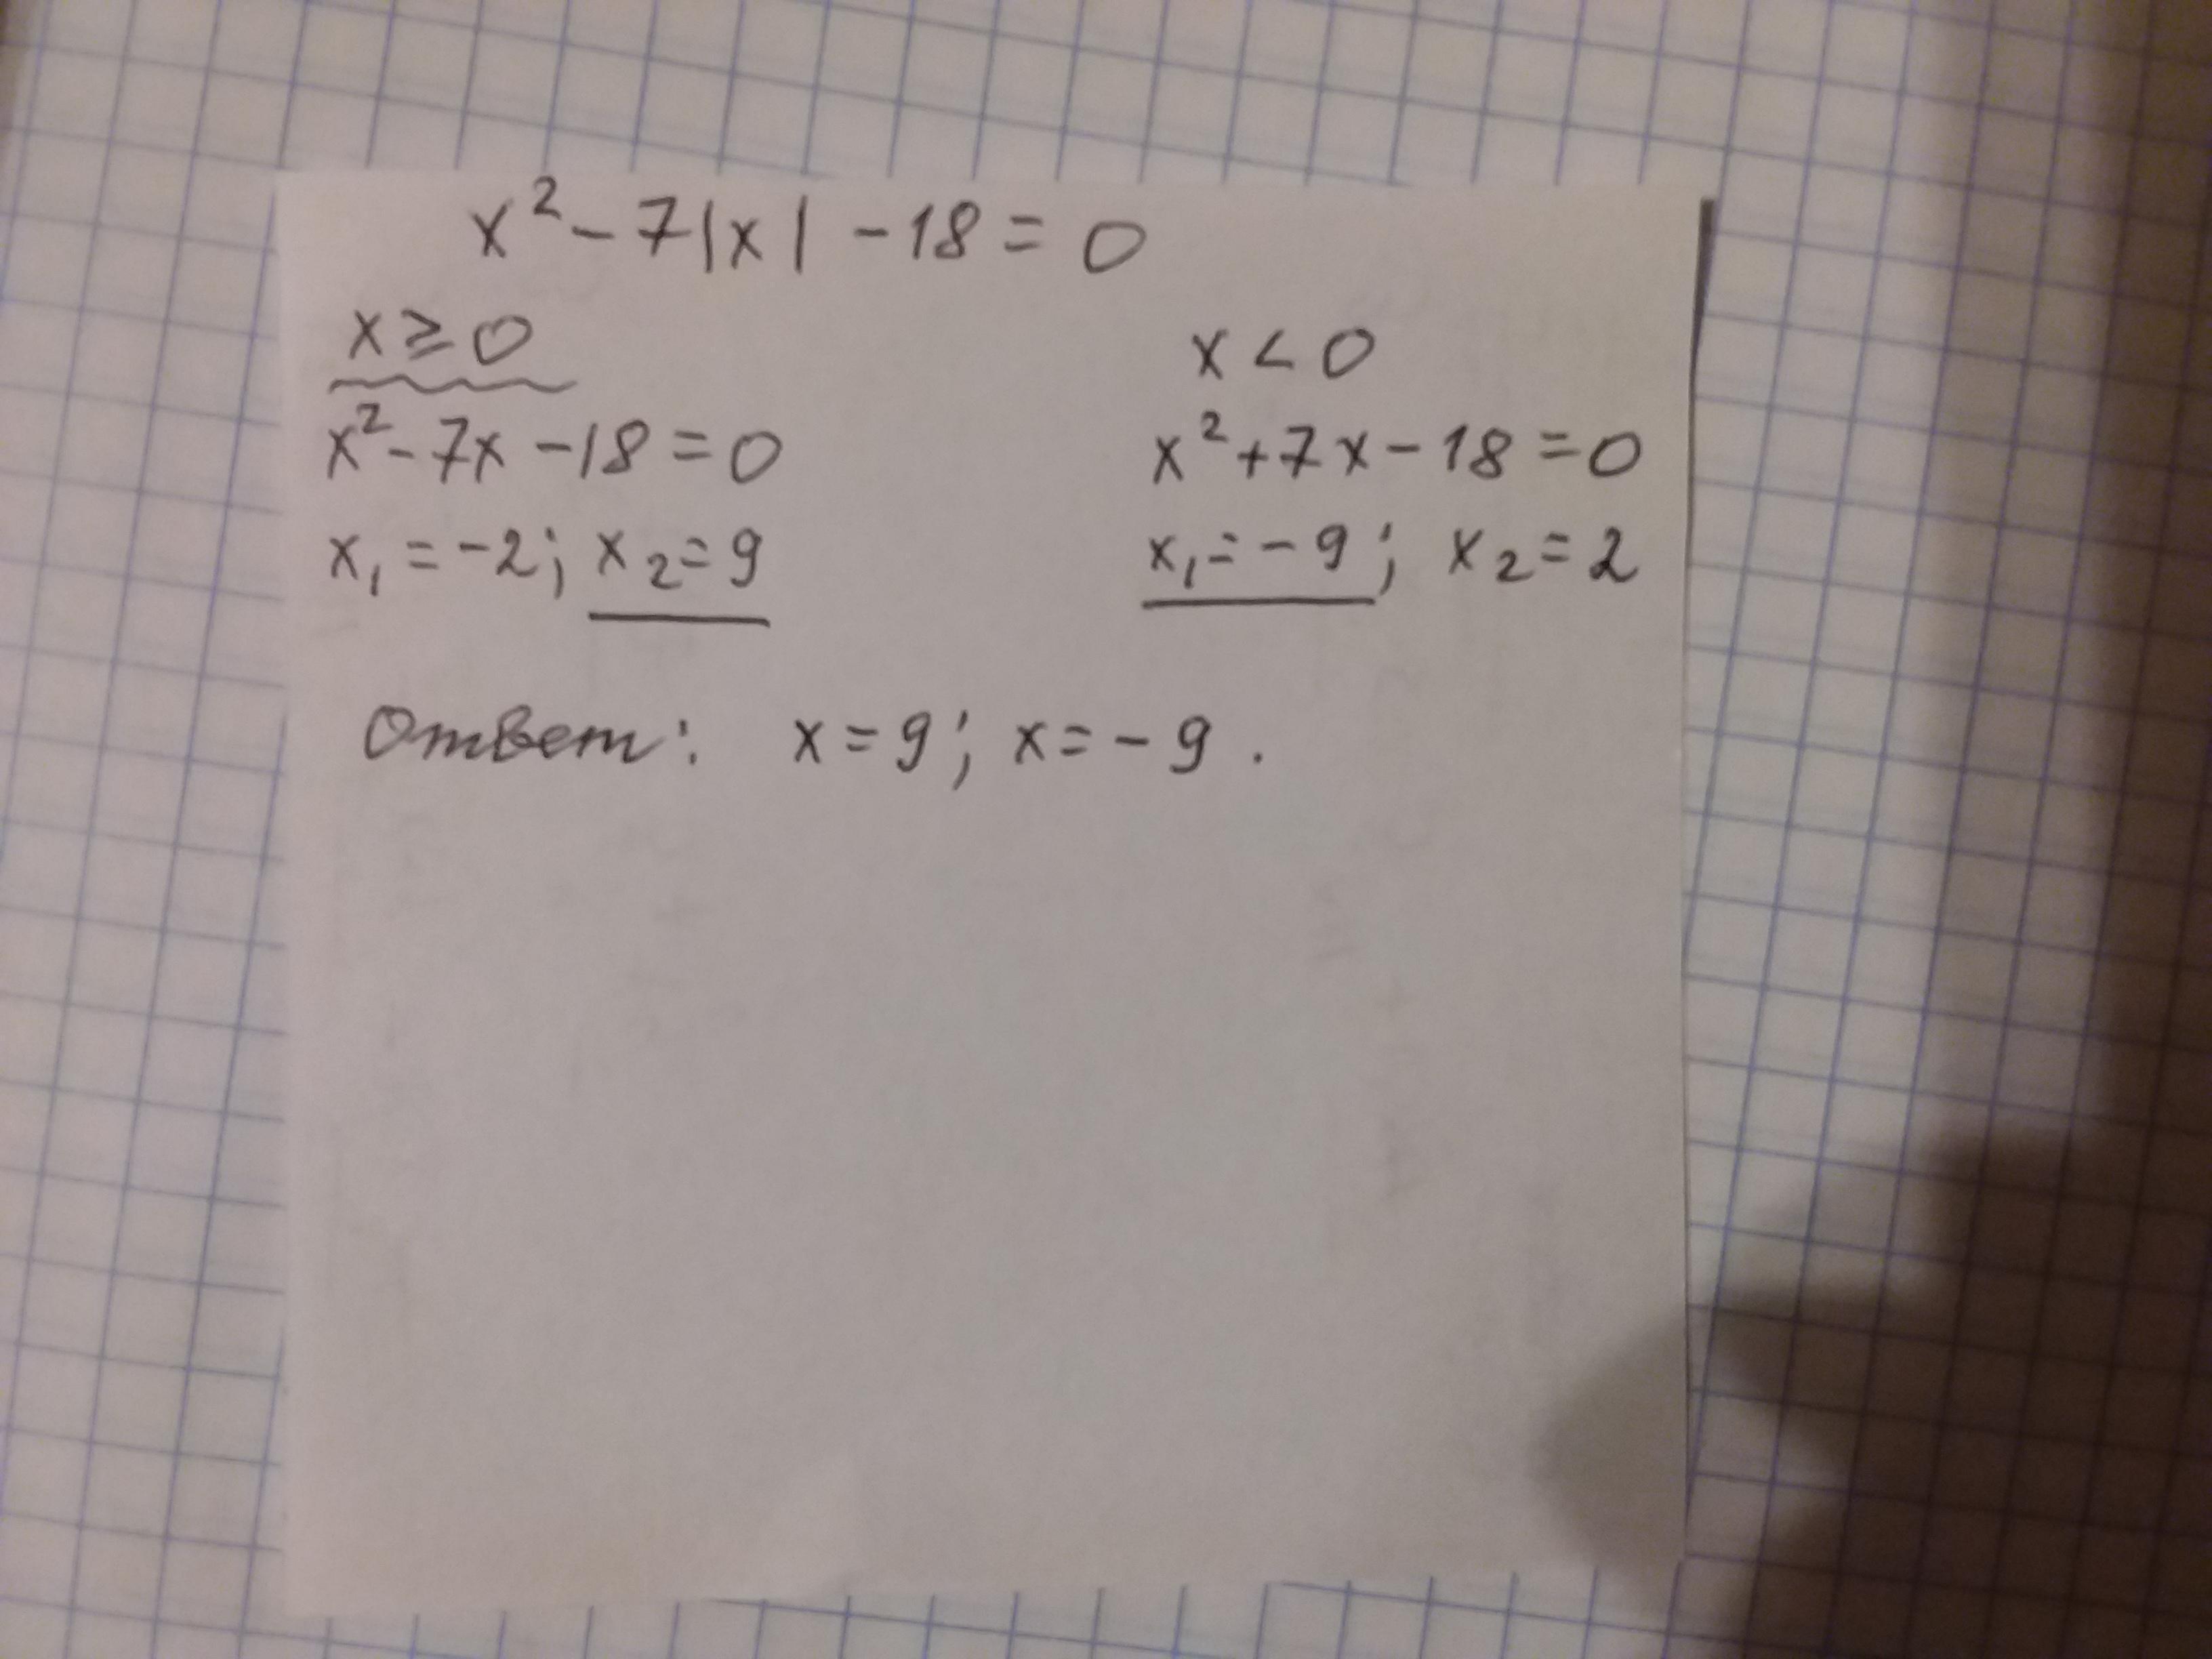 x² - 7|x| - 18 = 0
x ≥ 0
x² - 7x - 18 = 0
x₁ = -2; x₂ = 9
x < 0
x² + 7x - 18 = 0
x₁ = -9; x₂ = 2
Ответ: x = 9; x = -9.